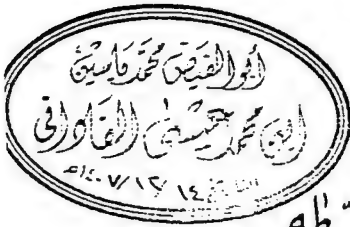 أبو الفيض محمد ياسين
ابن محمد عيسى الفاداني
١٤/١٢/١٤٠٧هـ